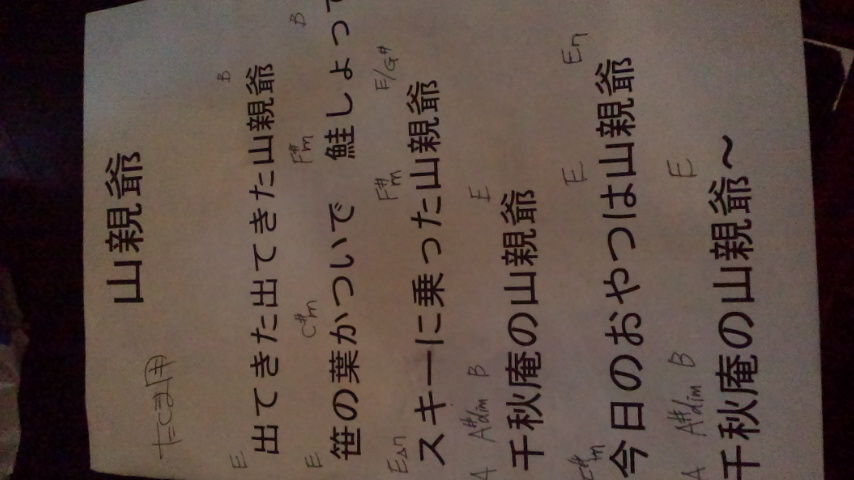 山親爺
E B
出てきた出てきた山親爺
E C#m F#m B
笹の葉かついで 鮭しょって
F#m E/G#
スキーに乗った山親爺
A A#dim B E
千秋庵の山親爺
C#m E
今日のおやつは山親爺
A A#dim B E
千秋庵の山親爺~